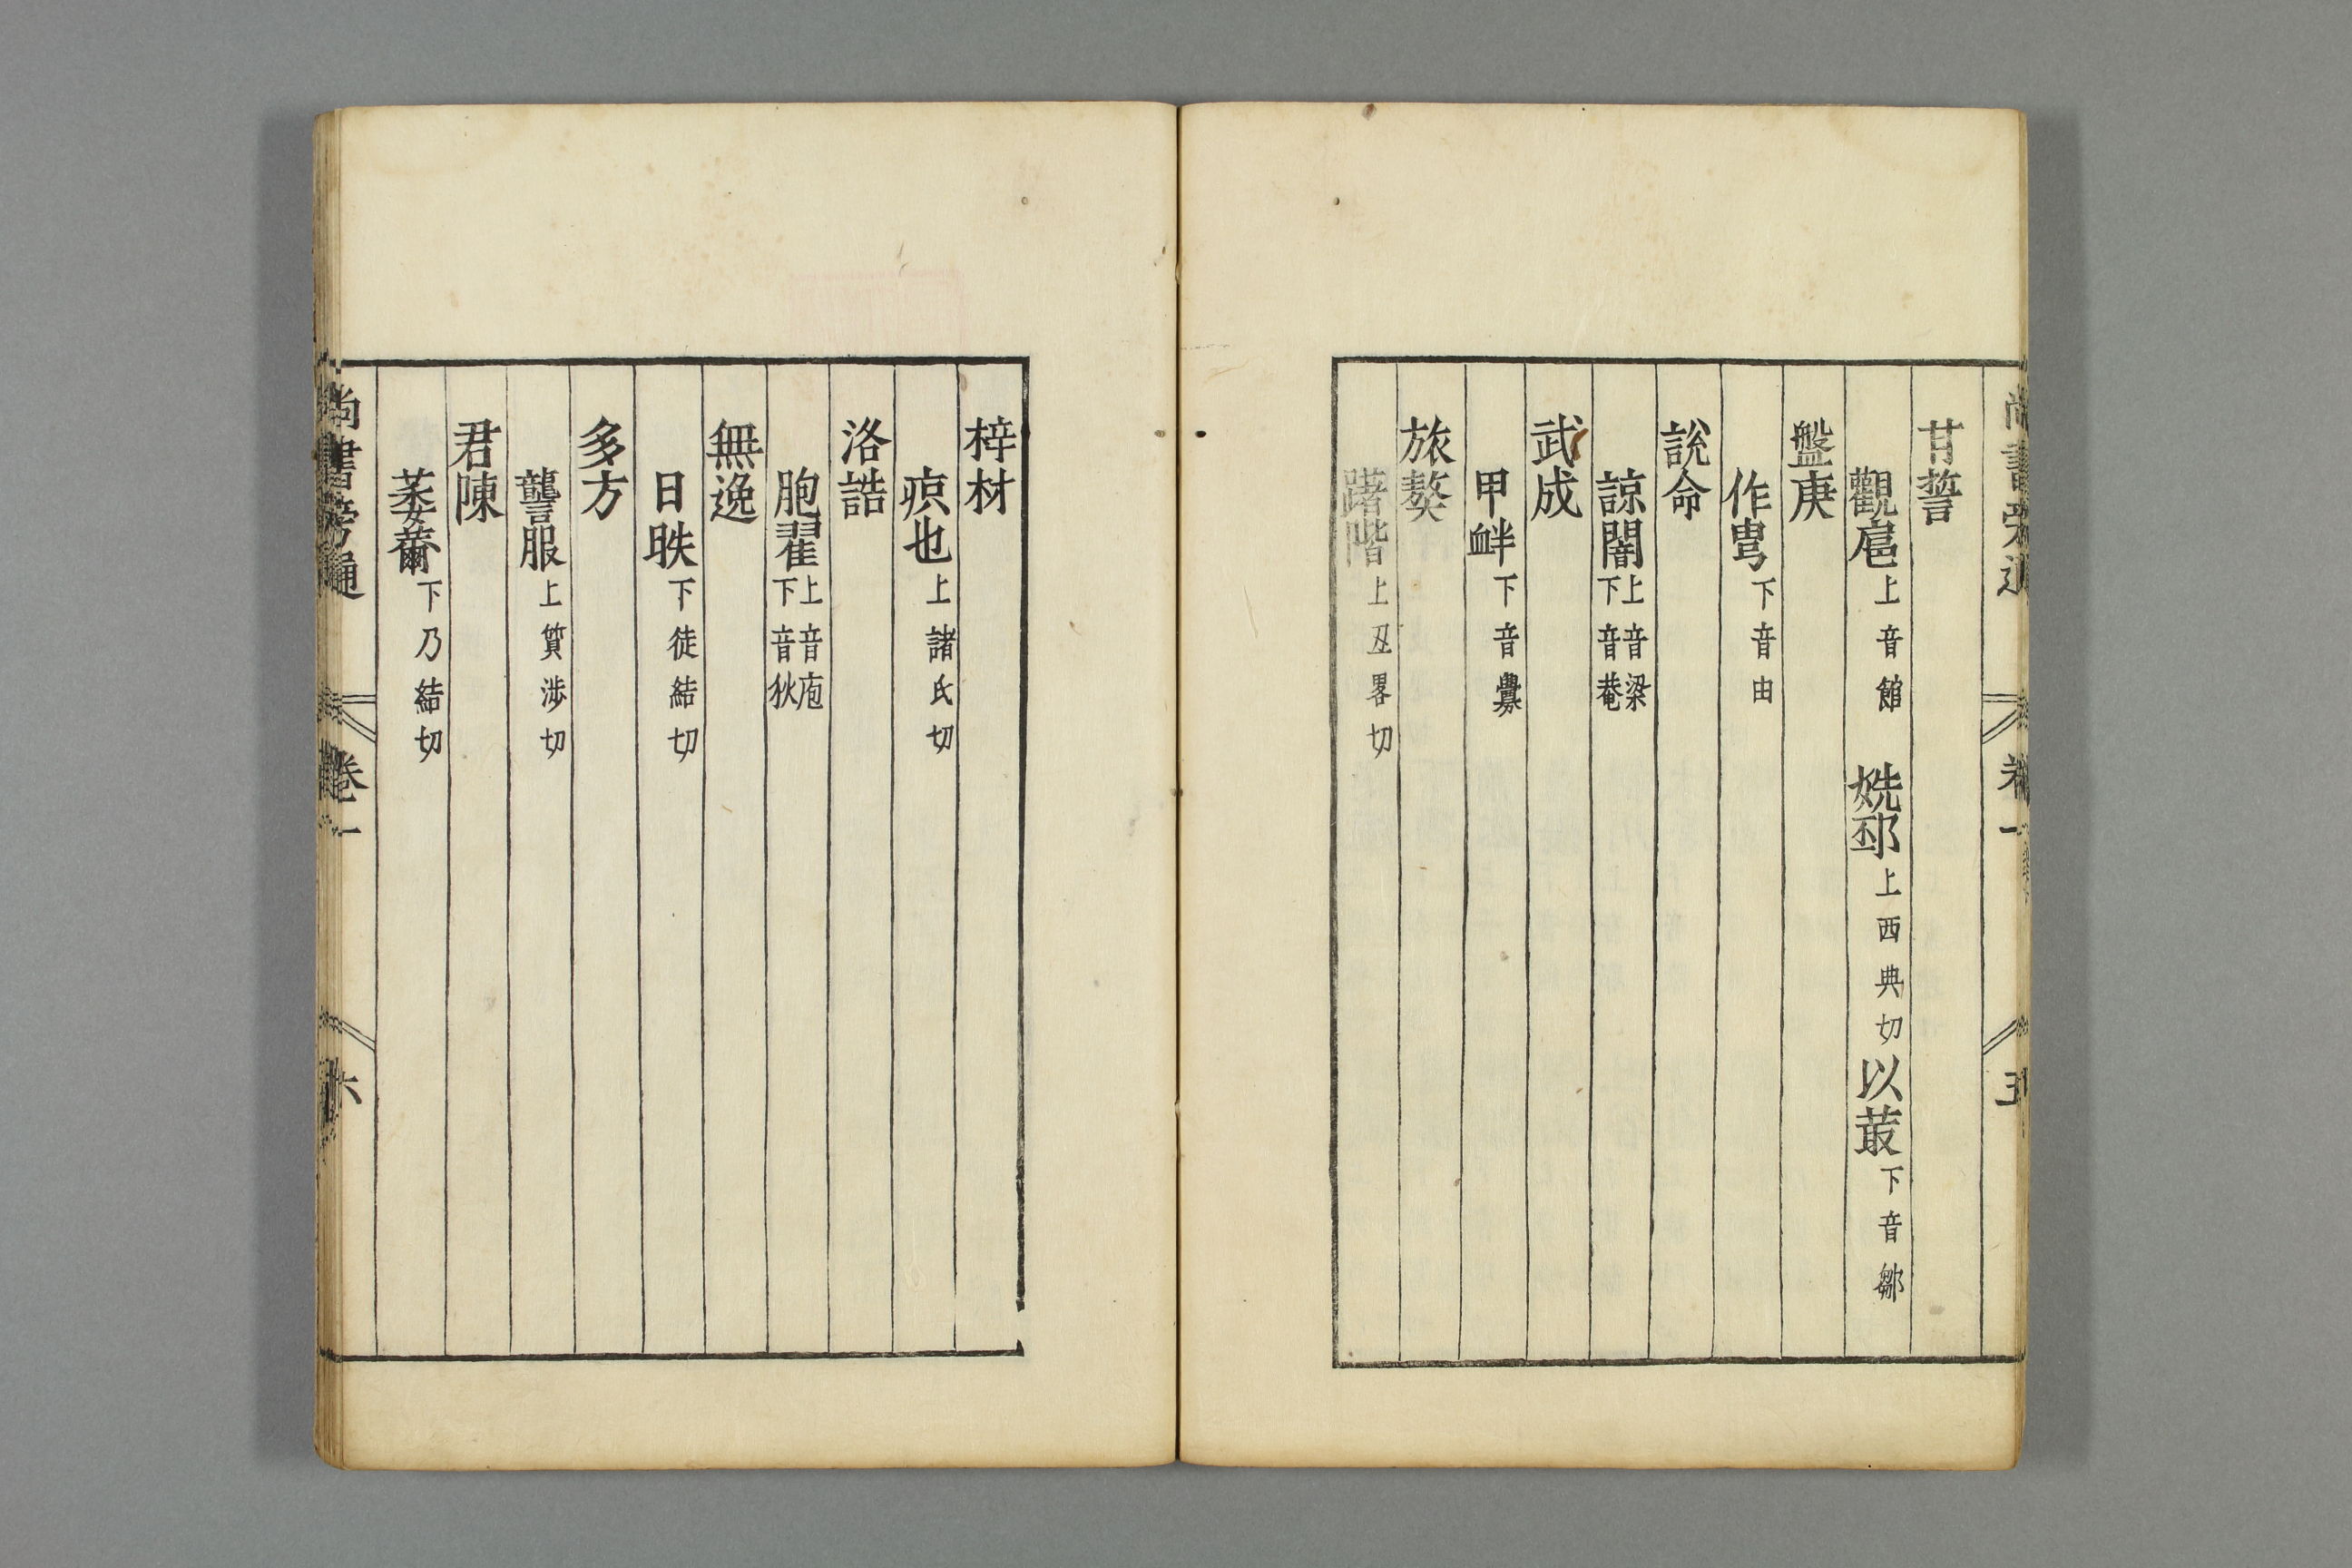 甘誓
觀扈上音館 姺邳上西典切以菆下音鄒
盤庚
作甹下音由
說命
諒闇上音梁下音菴
武成
甲衅下音釁
旅獒
躇階上丑畧切
尚書旁通 卷一 五
梓材
疻也上諸氏切
洛誥
胞翟上音庖下音狄
無逸
日昳下徒結切
多方
讋服上質涉切
君陳
菶薾下乃結切
尚書旁通 卷一 六